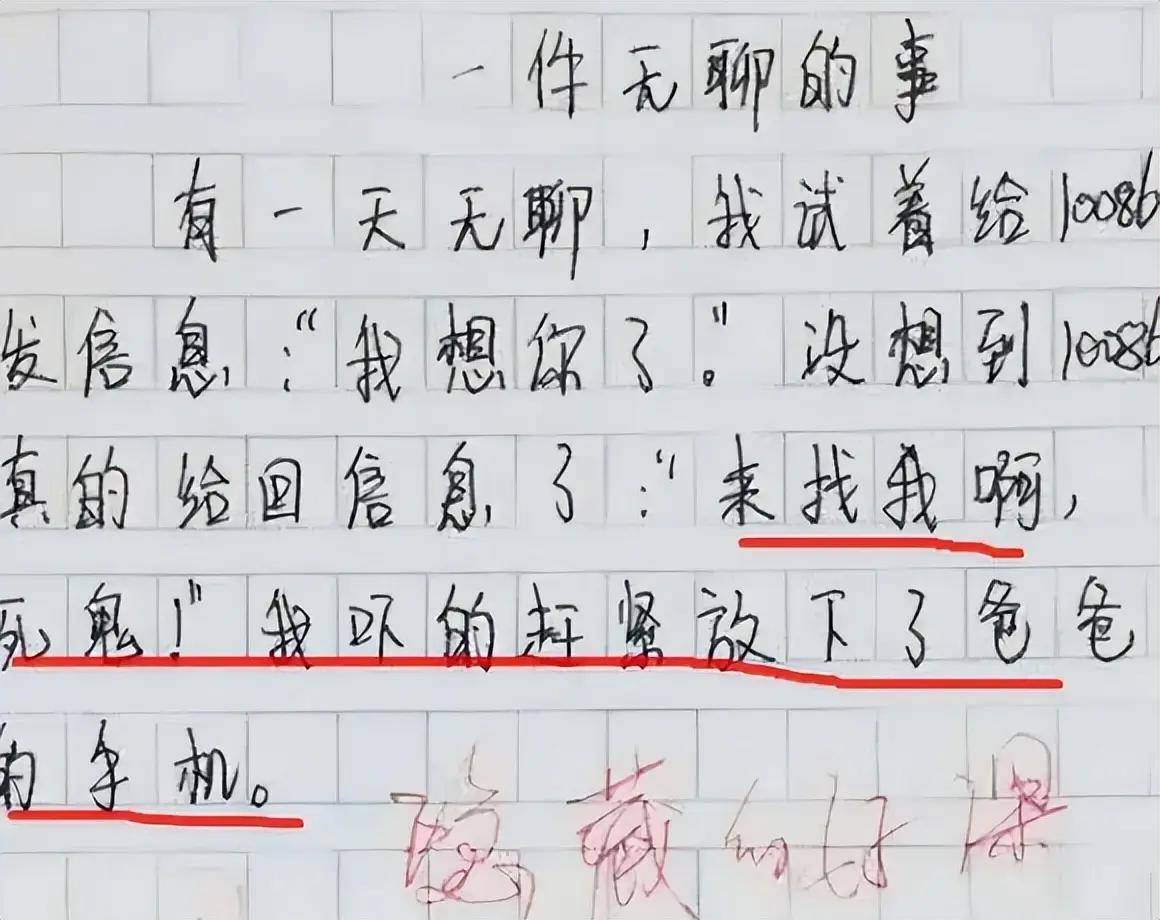 一件无聊的事
有一天无聊，我试着给10086
发信息：“我想你了。”没想到10086
真的给回信息了：“来找我啊，
死鬼！”我吓的赶紧放下了爸爸
的手机。
隐藏的好深